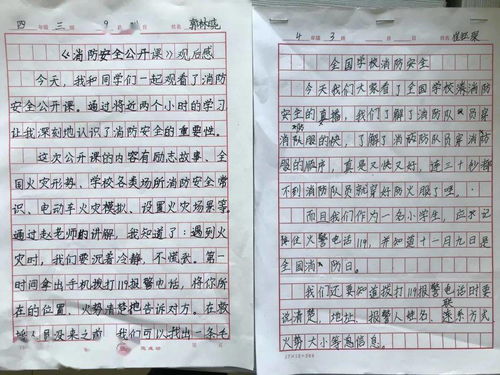 四 年级 三 班 9 月 日 姓名 郭林晓
《消防安全公开课》观后感
今天,我和同学们一起观看了消防
安全公开课。通过将近两个小时的学习,
让我深刻地认识了消防安全的重要性。
这次公开课的内容有励志故事、全
国火灾形势、学校各类场所消防安全常
识、电动车火灾模拟、设置火灾场景等。
通过赵老师的讲解,我知道了:遇到火
灾时,我们要沉着冷静,不慌张。第一
时间拿出手机拨打119报警电话,将你所
在的位置、火势清楚地告诉对方。在救
人员没来之前,我们可以找出一条毛
4 年级 3 班 月 日 姓名
全国学校消防安全
今天我们大家看了全国学校消防
安全的直播,我们了解了消防队员穿
消防服的快,了解了消防队员穿消防
服的顺序,真是又快又好,连三十秒都
不到消防队员就穿好防火服了哩。
而且我们作为一名小学生,应牢记
住火警电话119,并知道十一月九日是
全国消防日。
我们还要知道拨打119报警电话时要
说清楚,地址、报警人姓名、联系方式
火势大小等信息。